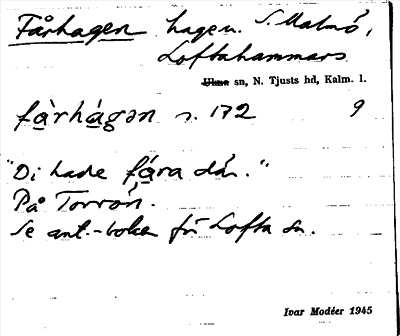 Fårhagen hagen. S. Malmö,
Loftahammars
Ukna sn, N. Tjusts hd, Kalm. l.
fa̱rha̱gən s. 172 9
"Di hade få̱ra dår."
På Torrön.
Se ant.-boken för Lofta sn.
Ivar Modéer 1945